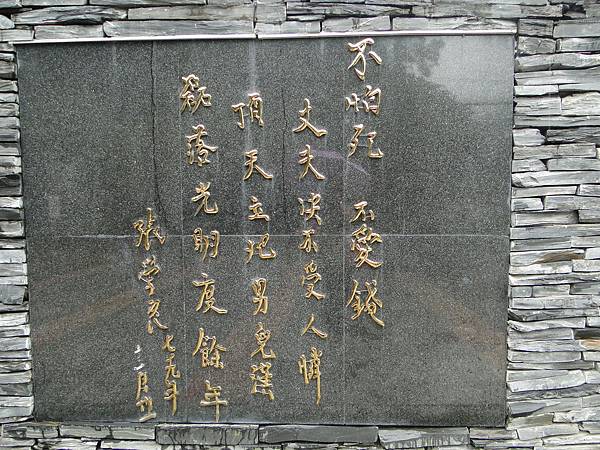 不怕死 不愛錢
丈夫決不受人憐
頂天立地男兒漢
磊落光明度餘年
張學良 七九年